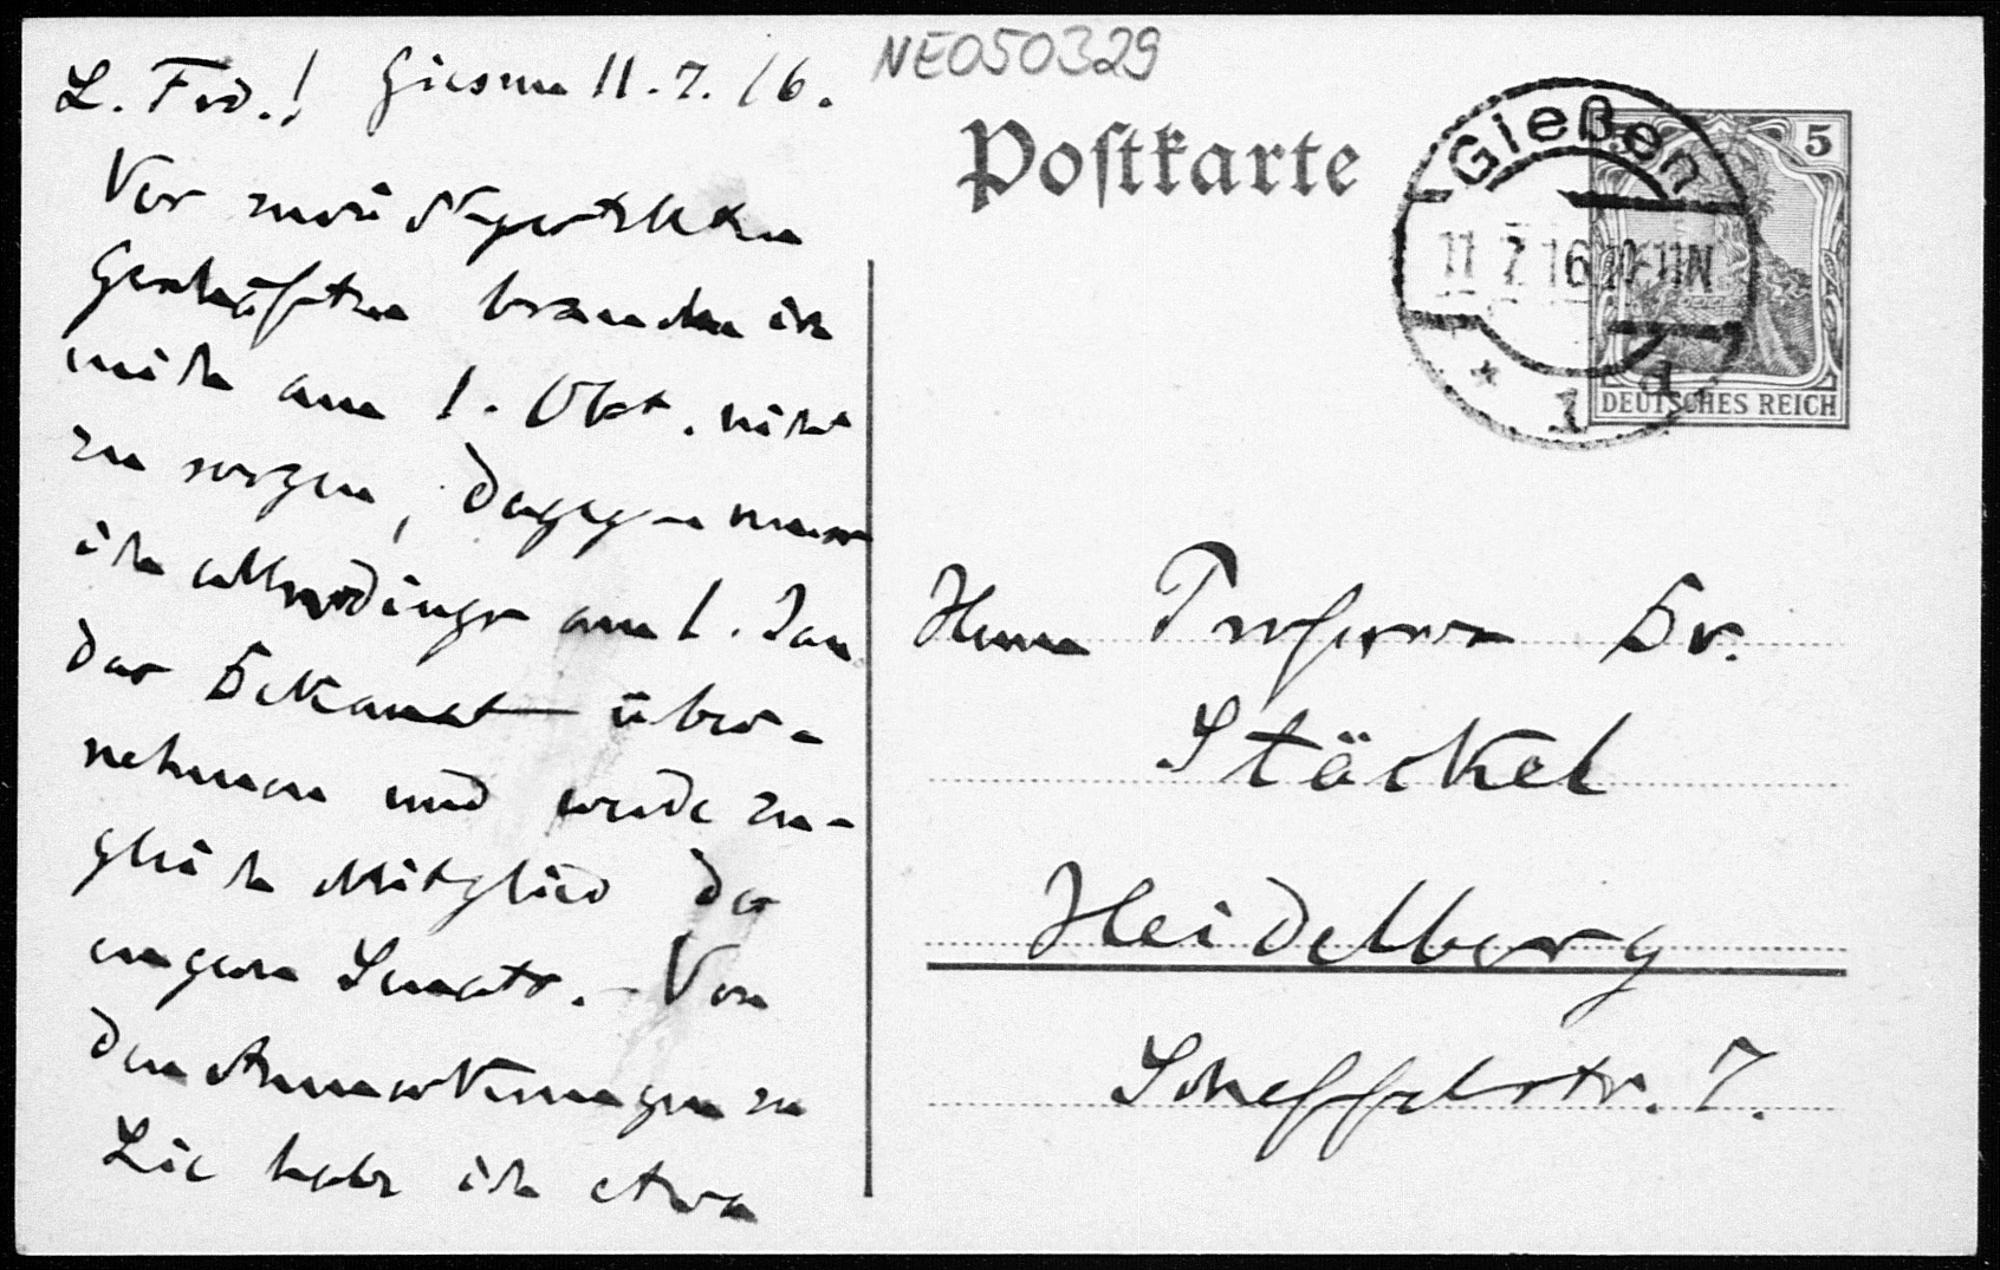 NE050329
L. Frd.! Giessen 11.7.16.
Vor zwei
Geschäften brauche ich
mich am 1. Okt. nicht
zu sorgen, dagegen muss
ich allerdings am 1. Jan
das Dekanat über-
nehmen und werde zu-
gleich Mitglied des
engern Senats. – Von
den Anmerkungen zu
Lie habe ich etwa
Postkarte
Gießen
11 7 16 10-11N
* 1 d
5
DEUTSCHES REICH
Herrn Professor Dr.
Stäckel
Heidelberg
Scheffelstr. 7.